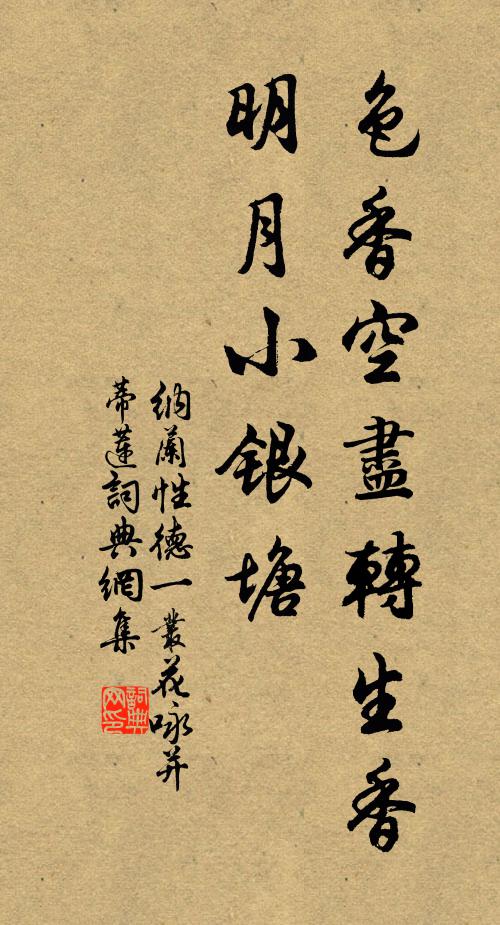 色香空盡轉生香
明月小銀塘
納蘭性德一叢花咏并
蒂蓮詞典網集
詞典
网印